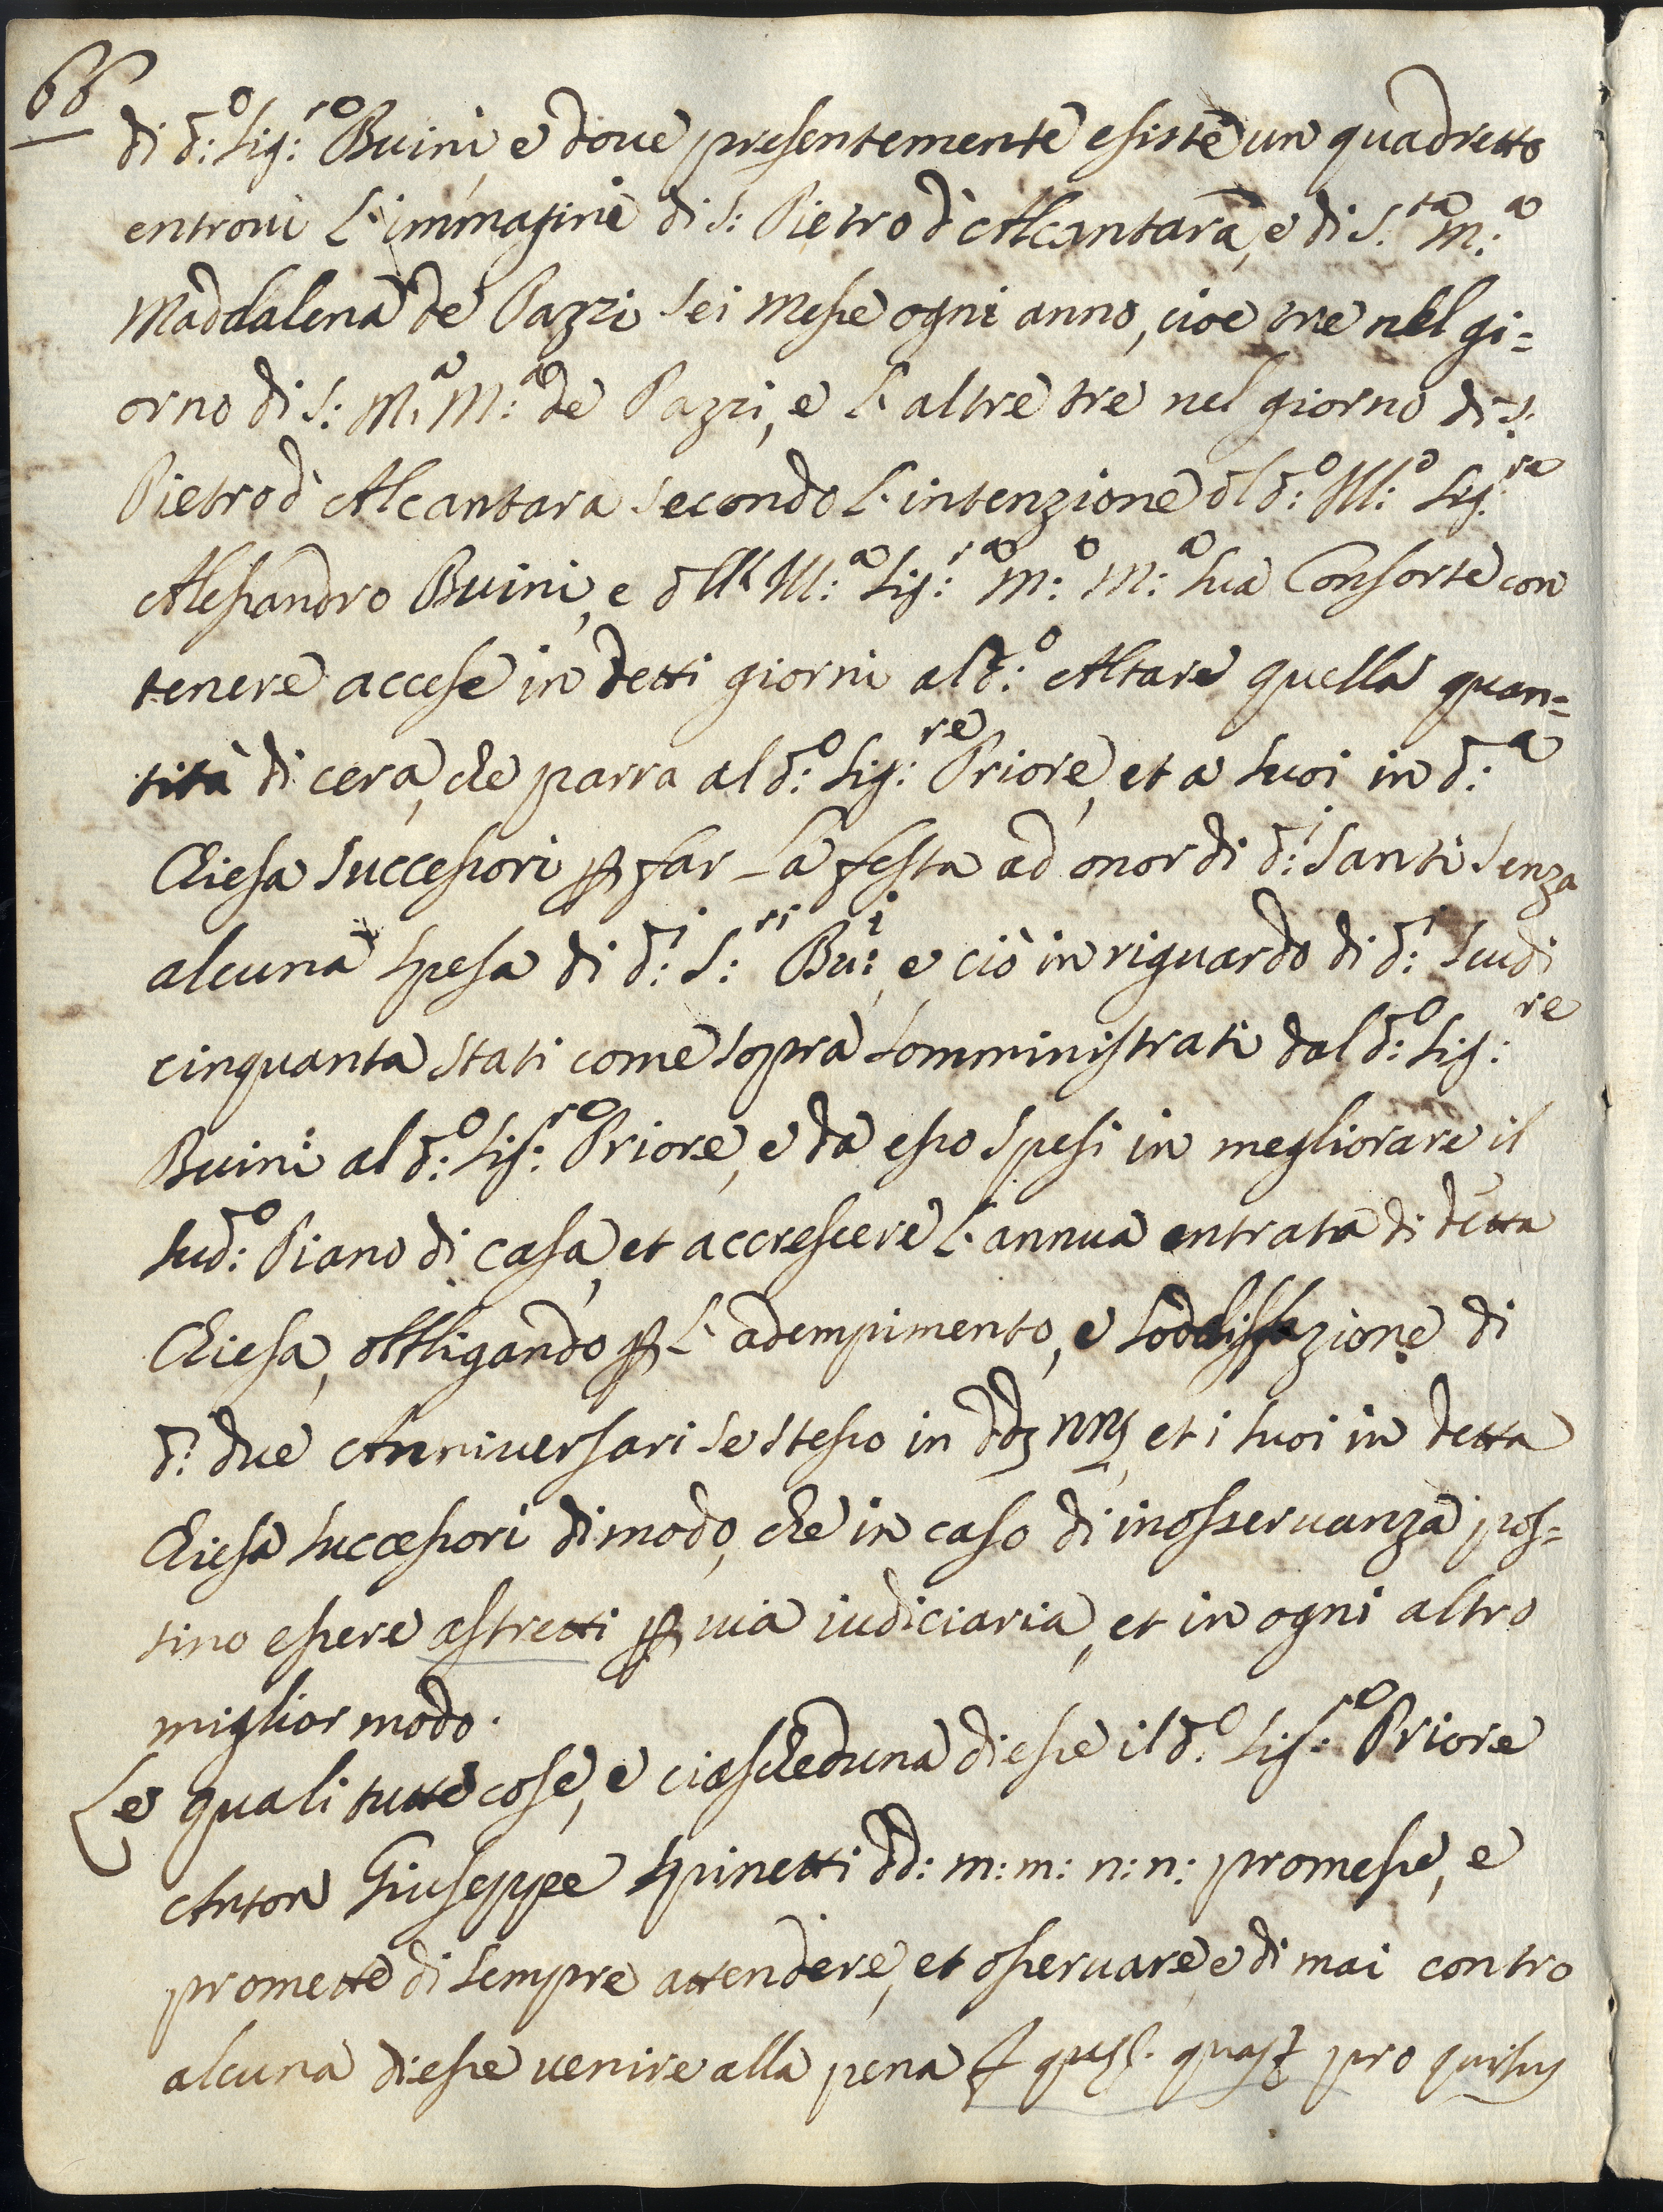 66
di d:o Sig:re Buini, e doue presentemente esiste un quadretto
entroui L'immagine di S: Pietro d'Alcantara, e di S.ta M:a
Maddalena de Pazzi sei Messe ogni anno, cioe tre nel gi=
orno di S: M.a M:a de Pazzi, e L'altre tre nel giorno di S.
Pietro d'Alcantara secondo L'intenzione dl d:o Ill:o Sig:re
Alessandro Buini, e dlla Ill:a Sig:ra M:a M:a sua Consorte con
tenere accese in detti giorni al d:o Altare quella quan=
tità di cera, che parra al d:o Sig:re Priore, et a suoi in d:a
Chiesa Successori p far La festa ad onor di d:i Santi senza
alcuna spesa di d:i S:ri Bu:i, e ciò in riguardo di d:i scudi
cinquanta stati come sopra somministrati dal d:o Sig:re
Buini al d:o Sig:re Priore, e da esso spesi in megliorare il
sud:o Piano di casa, et accrescere L'annua entrata di detta
Chiesa, obbligando p L'adempimento, e soddisfazione di
d:i due Anniversari se stesso in et i suoi in detta
Chiesa successori di modo, che in caso di inosseruanza pos=
sino essere astretti p uia iudiciaria, et in ogni altro
miglior modo.
Le quali tutte cose, e ciascheduna di esse il d:o Sig:re Priore
Anton Giuseppe Spinetti dd: m: m: n: n: promesse, e
promette di sempre attendere, et osseruare, e di mai contro
alcuna di esse uenire alla pena pro quibus